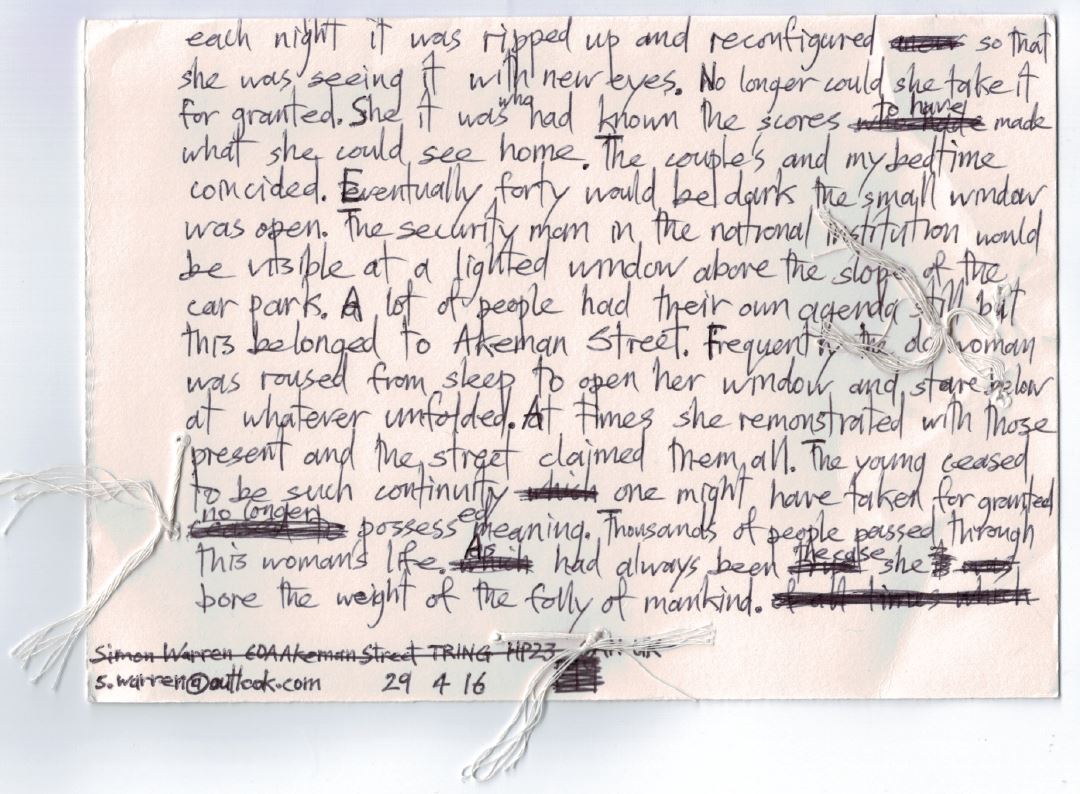 each night it was ripped up and reconfigured so that
she was seeing it with new eyes. No longer could she take it
for granted. She it was who had known the scores to have made
what she could see home. The couple's and my bedtime
coincided. Eventually forty would be dark the small window
was open. The security man in the national institution would
be visible at a lighted window above the slope of the
car park. A lot of people had their own agenda still but
this belonged to Akeman Street. Frequently the old woman
was roused from sleep to open her window and stare below
at whatever unfolded. At times she remonstrated with those
present and the street claimed them all. The young ceased
to be such continuity which one might have taken for granted
no longer possessed meaning. Thousands of people passed through
this woman's life. As had always been the case she
bore the weight of the folly of mankind. of all times which
Simon Warren 60A Akeman Street TRING HP23 UK
s.warren@outlook.com 29 4 16